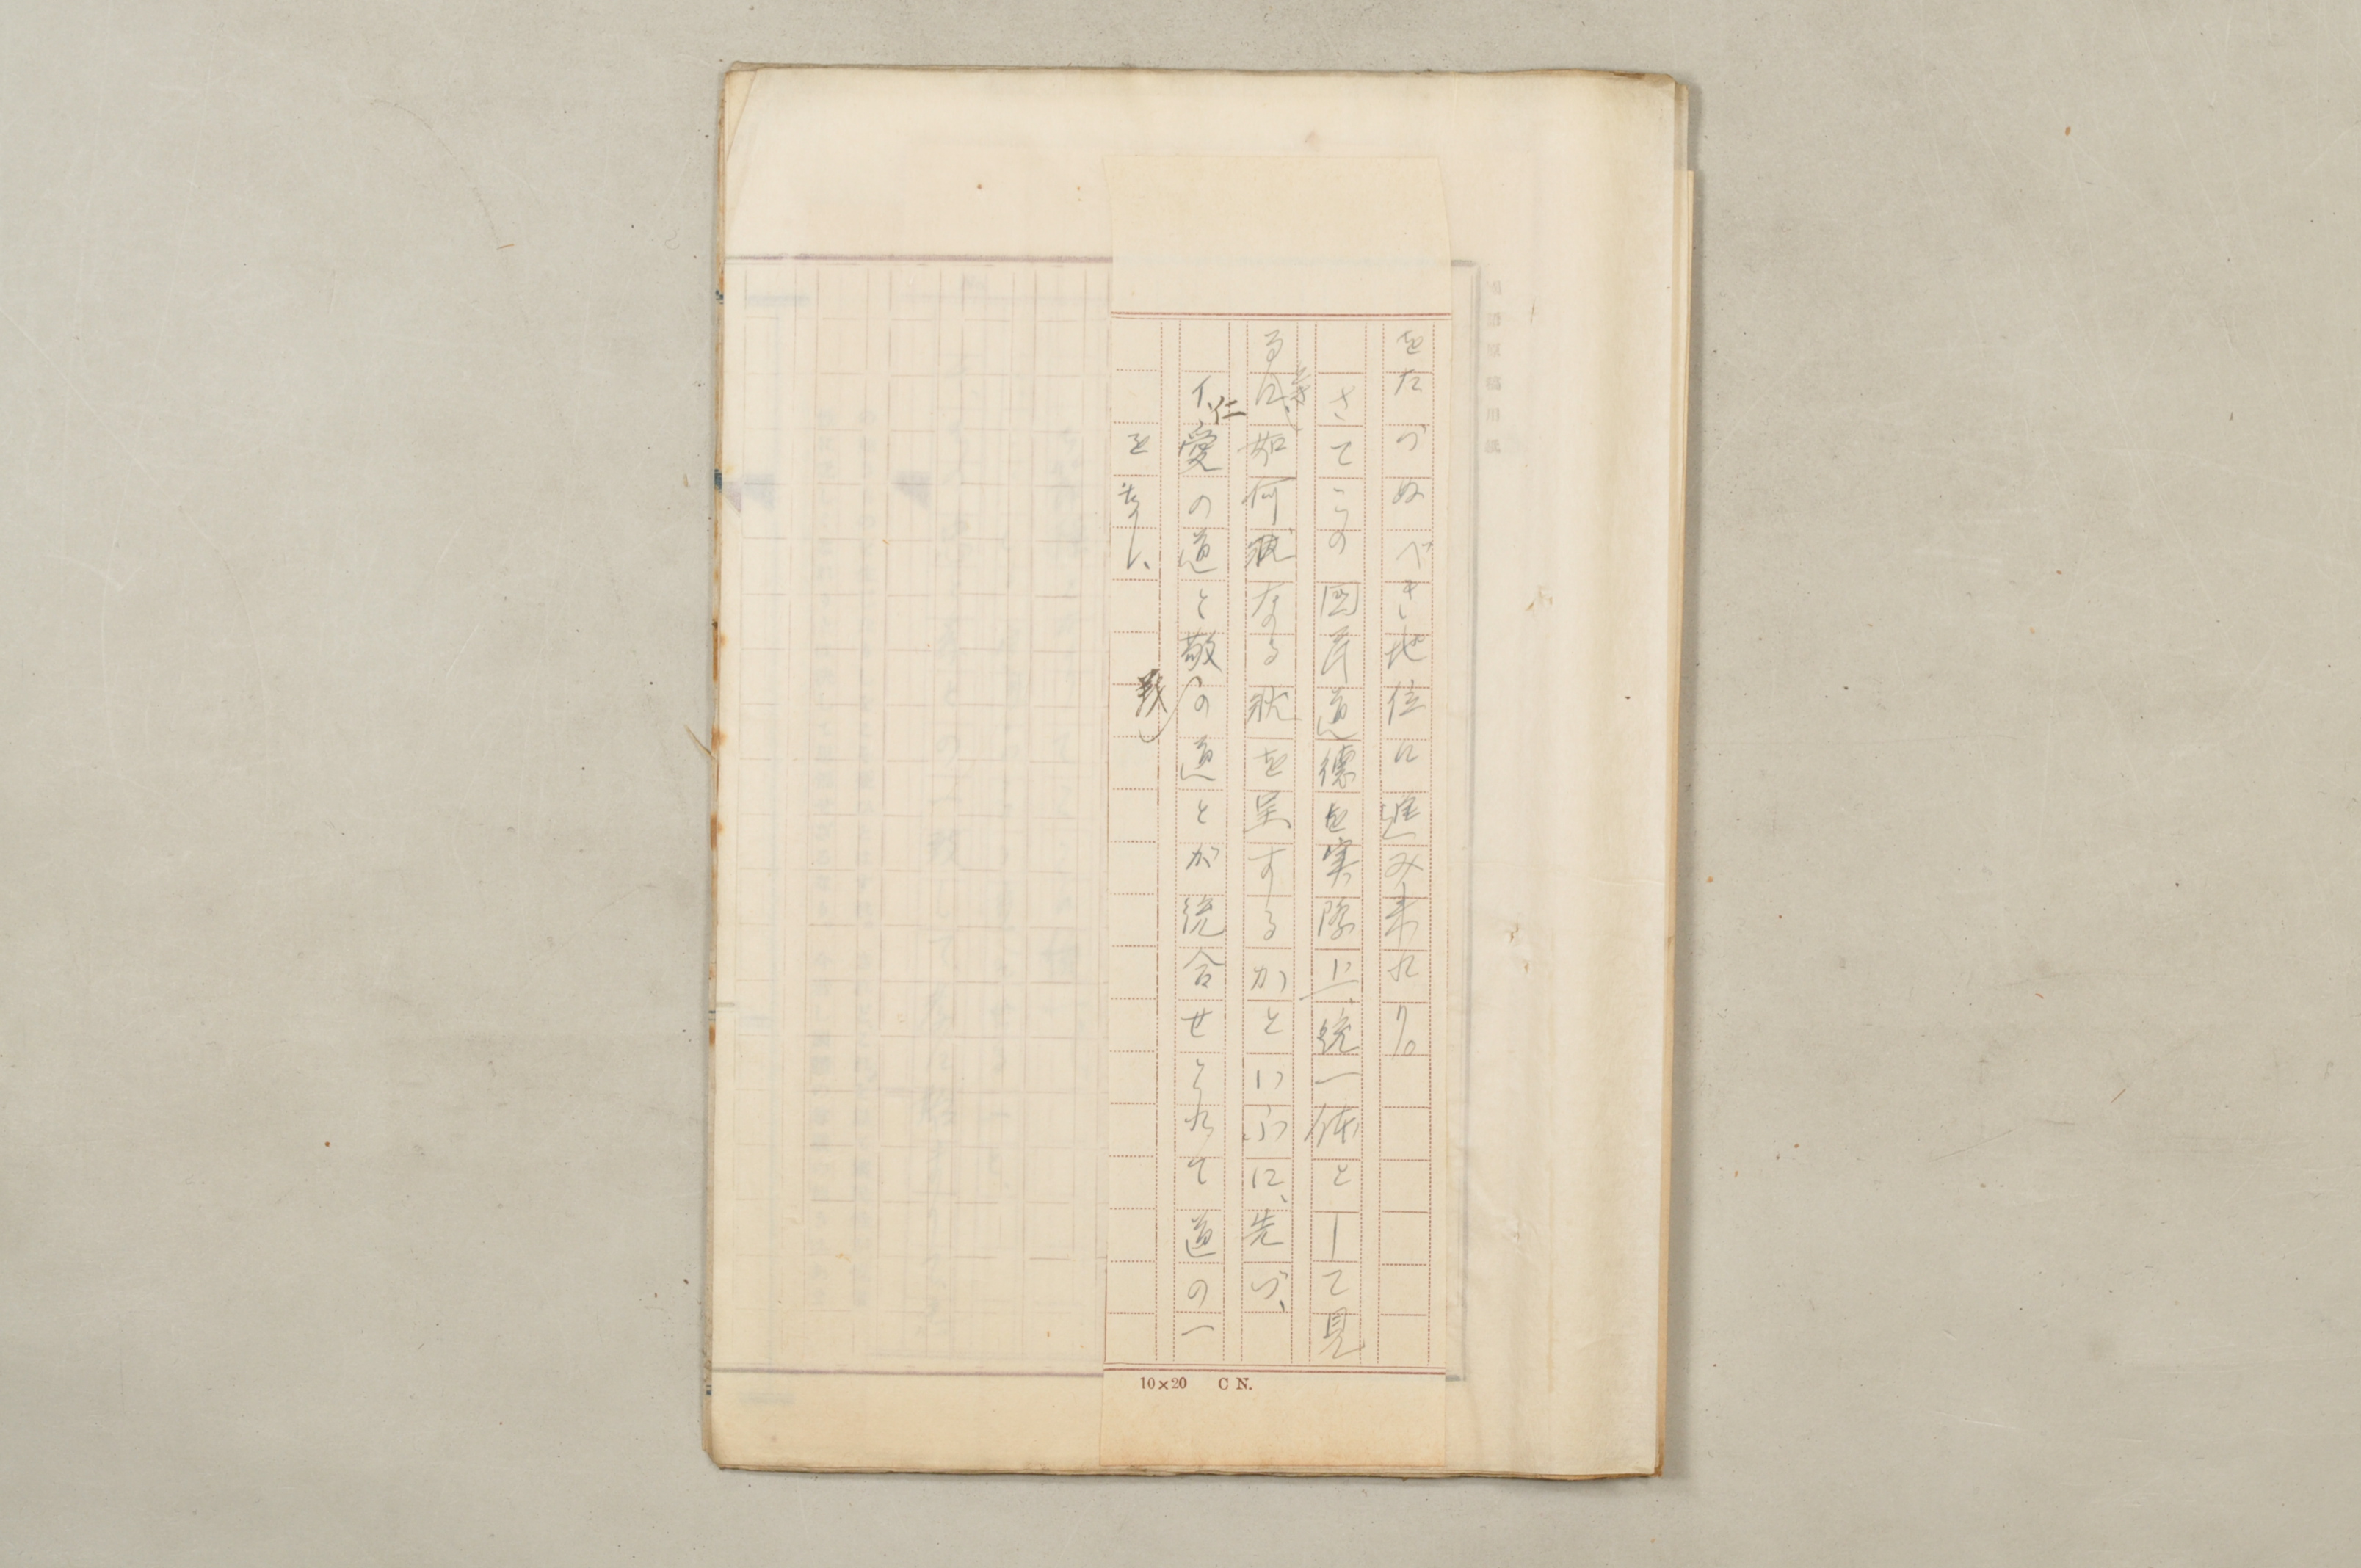 をたづぬべき地位に進み来れり。
さてこの国民道徳を実際上、統一体として見
る時に、如何なる状を呈するかといふに、先づ、
仁愛の道と敬の道とが統合せられて道の一
をなし、
10×20 C N.